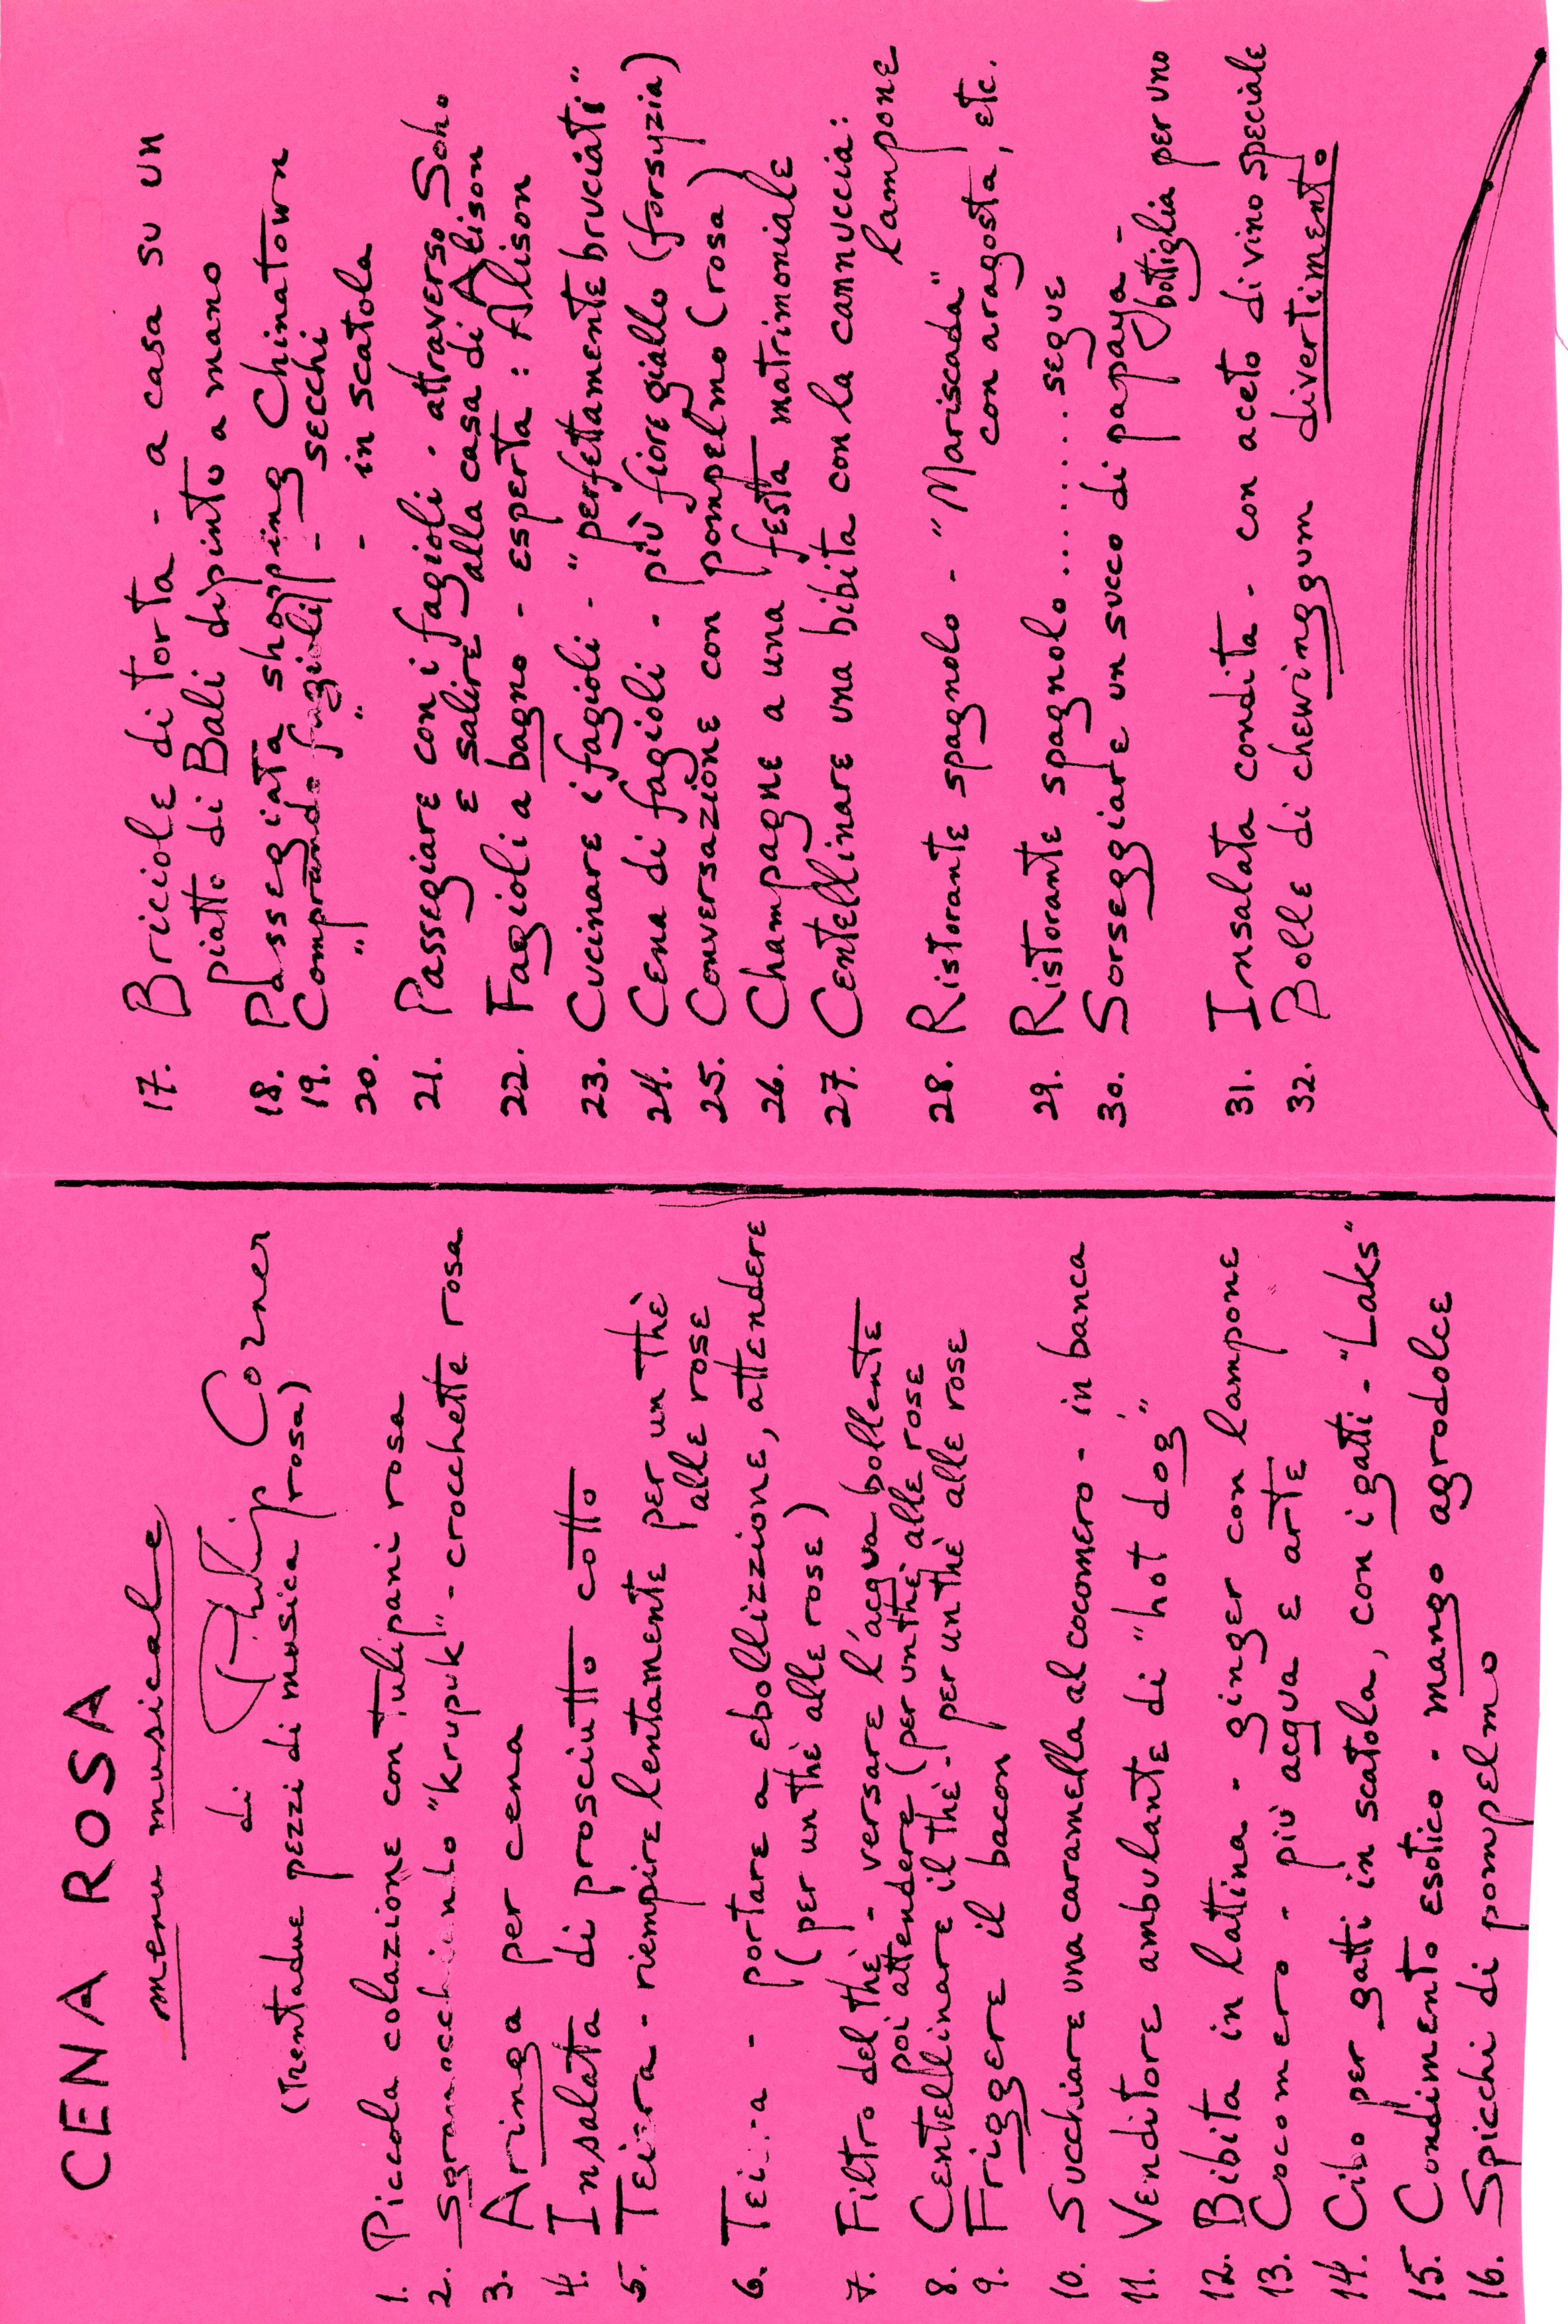 CENA ROSA
menu musicale
di Philip Corner
(trentadue pezzi di musica rosa)
1. Piccola colazione con tulipani rosa
2. Sgranocchiando "krupuk" - crocchette rosa
3. Aringa per cena
4. Insalata di prosciutto cotto
5. Teiera - riempire lentamente per un thè
alle rose
6. Teiera - portare a ebollizzione, attendere
(per un thè alle rose)
7. Filtro del thè - versare l'acqua bollente
poi attendere (per un thè alle rose
8. Centellinare il thè - per un thè alle rose
9. Friggere il bacon
10. Succhiare una caramella al cocomero - in banca
11. Venditore ambulante di "hot dog"
12. Bibita in lattina - ginger con lampone
13. Cocomero - più acqua e arte
14. Cibo per gatti in scatola, con i gatti - "Laks"
15. Condimento esotico - mango agrodolce
16. Spicchi di pompelmo
17. Bricciole di torta - a casa su un
piatto di Bali dipinto a mano
18. Passegiata shopping Chinatown
19. Comprando fagioli - secchi
20. " " - in scatola
21. Passegiare con i fagioli - attraverso Soho
e salire alla casa di Alison
22. Fagioli a bagno - esperta : Alison
23. Cucinare i fagioli - "perfettamente bruciati"
24. Cena di fagioli - più fiore giallo (forsyzia)
25. Conversazione con pompelmo (rosa)
26. Champagne a una festa matrimoniale
27. Centellinare una bibita con la cannuccia:
lampone
28. Ristorante spagnolo - "Mariscada"
con aragosta, etc.
29. Ristorante spagnolo ......... segue
30. Sorseggiare un succo di papaya -
bottiglia per uno
31. Insalata condita - con aceto di vino speciale
32. Bolle di chewinggum divertimento